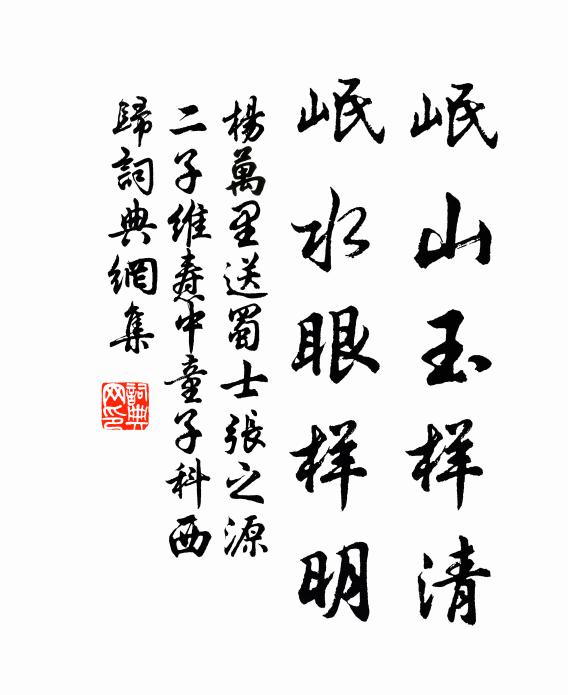 岷山玉样清
岷水眼样明
楊萬里送蜀士張之源
二子維焘中童子科西
歸詞典網集
詞典
网印